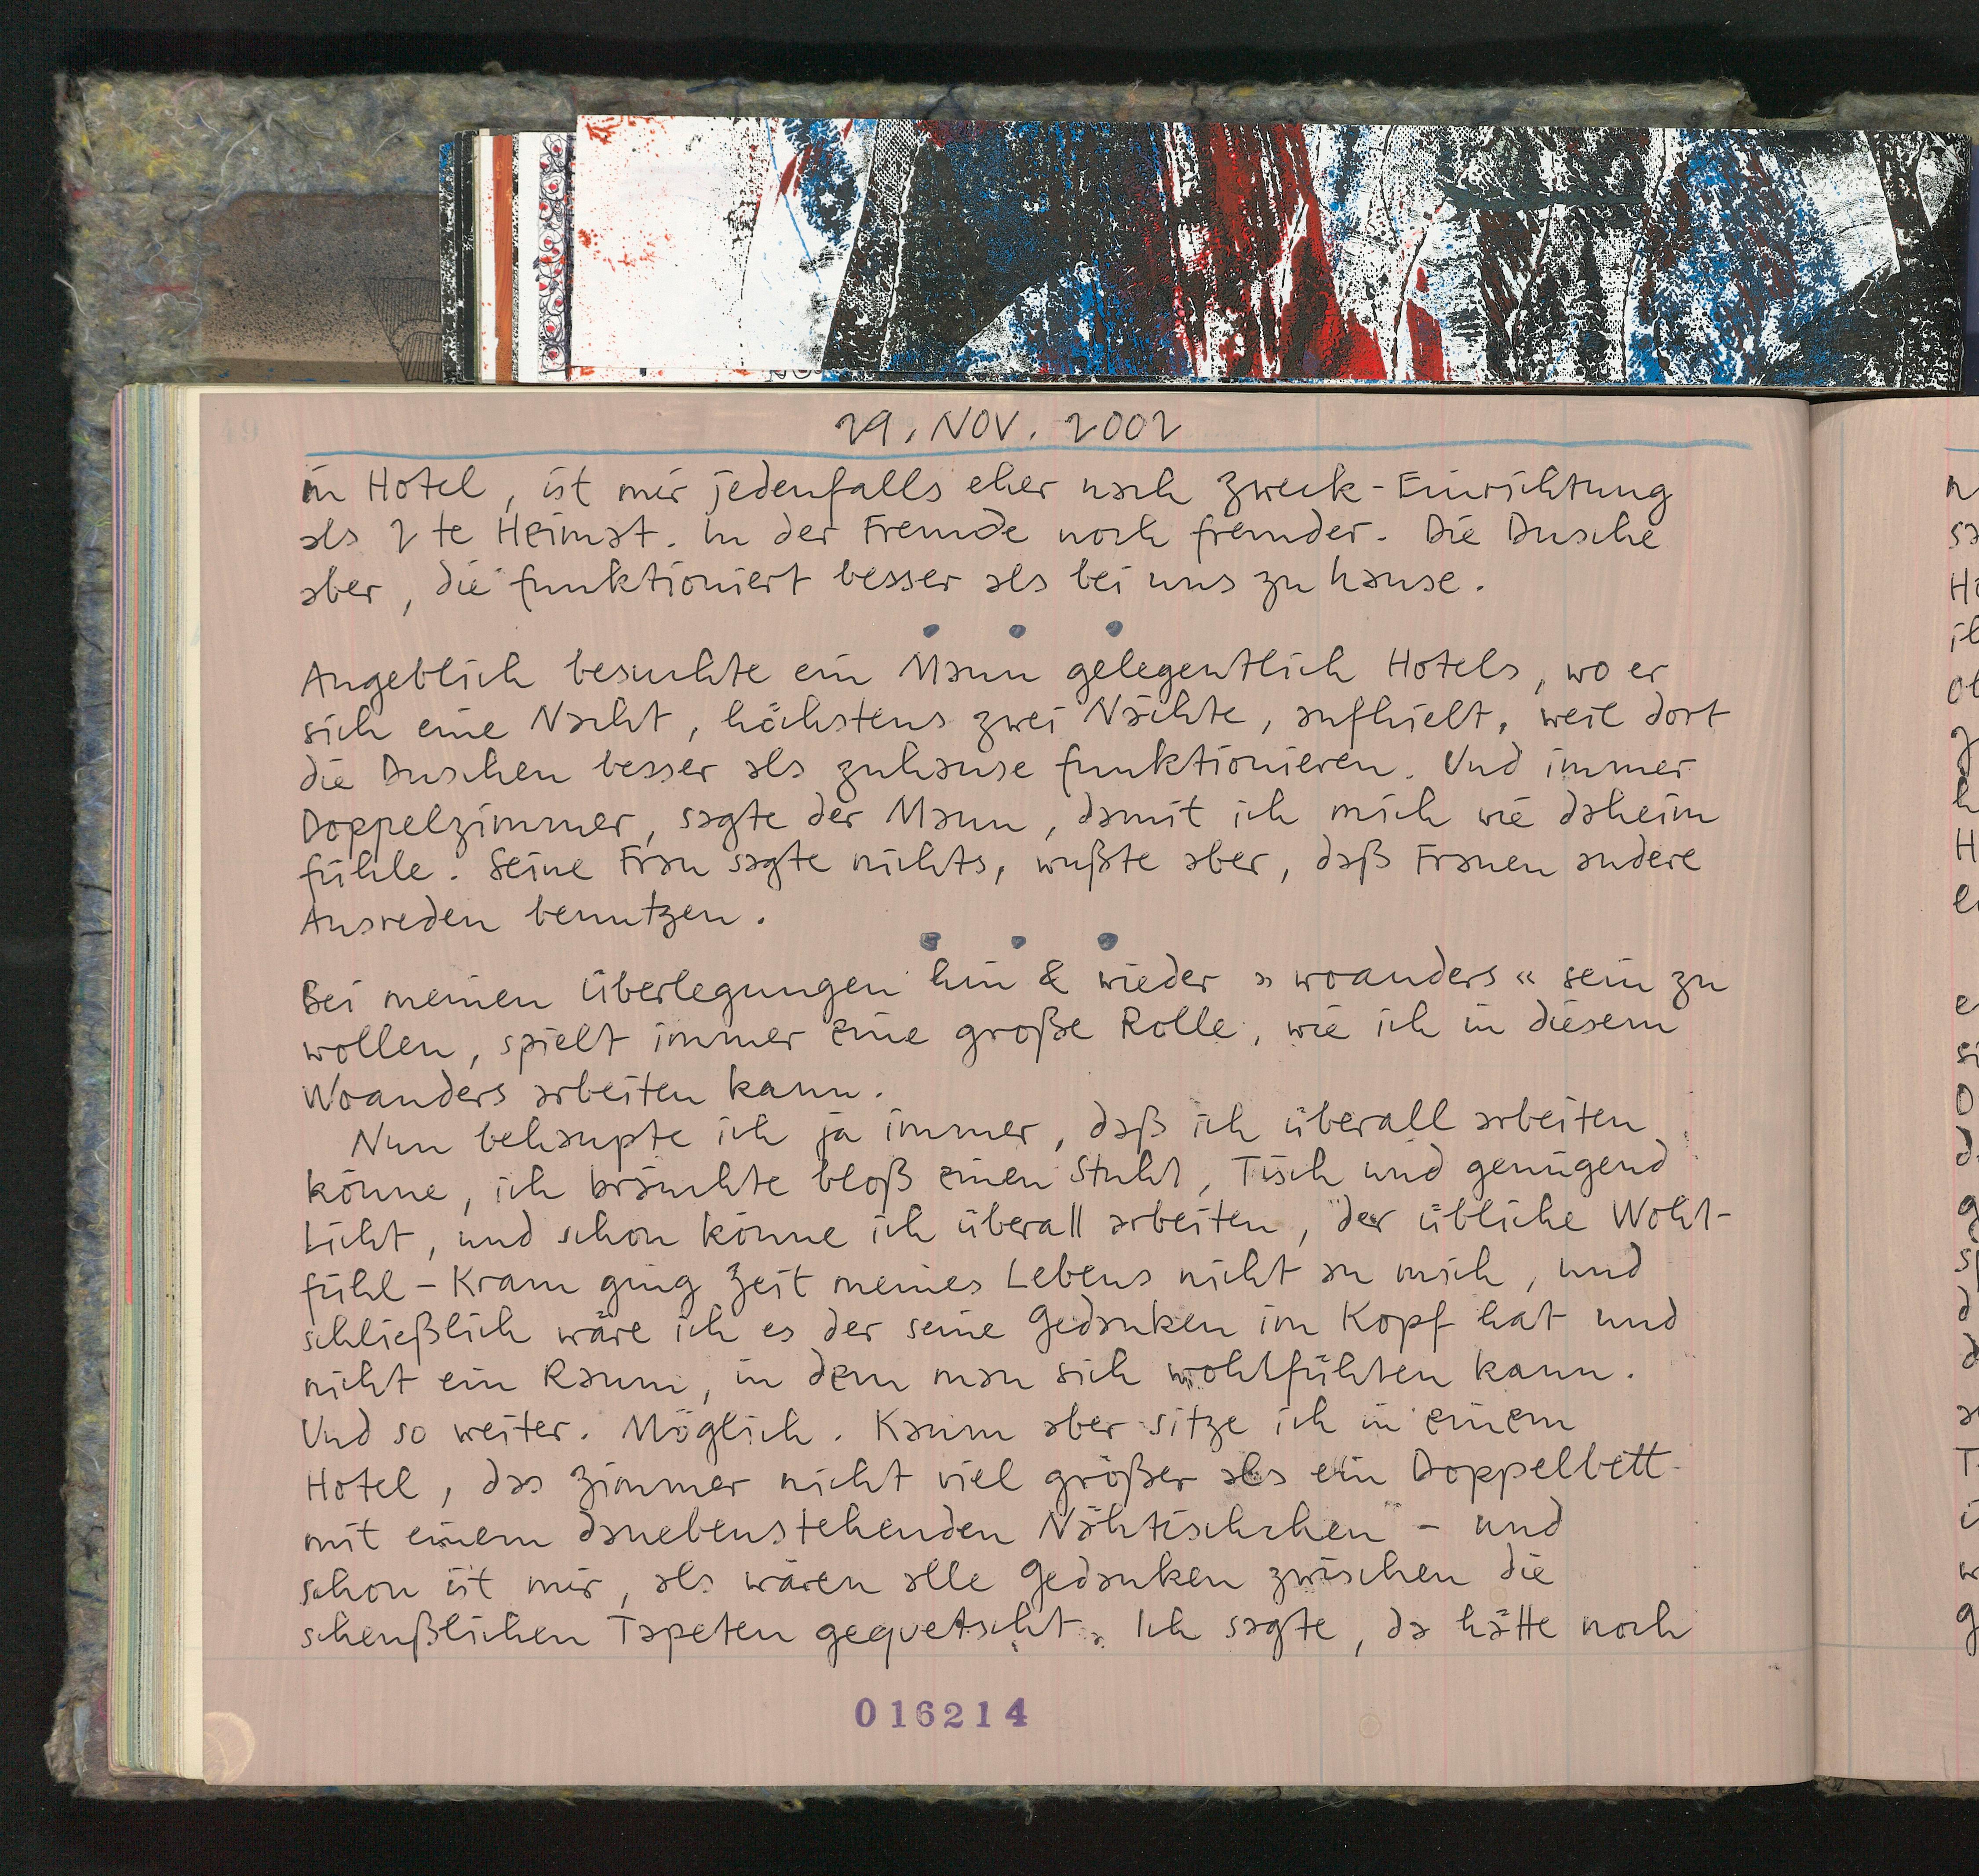 29. NOV. 2002
in Hotel, ist mir jedenfalls eher nach Zweck-Einrichtung
als 2te Heimat. In der Fremde noch fremder. Die Dusche
aber, die funktioniert besser als bei uns zuhause.
Angeblich besuchte ein Mann gelegentlich Hotels, wo er
sich eine Nacht, höchstens zwei Nächte, aufhielt, weil dort
die Duschen besser als zuhause funktionieren. Und immer
Doppelzimmer, sagte der Mann, damit ich mich wie daheim
fühle. Seine Frau sagte nichts, wußte aber, daß Frauen andere
Ausreden benutzen.
Bei meinen Überlegungen hin & wieder »woanders« sein zu
wollen, spielt immer eine große Rolle, wie ich in diesem
Woanders arbeiten kann.
Nun behaupte ich ja immer, daß ich überall arbeiten
könne, ich bräuchte bloß einen Stuhl, Tisch und genügend
Licht, und schon könne ich überall arbeiten, der übliche Wohl-
fühl-Kram ging Zeit meines Lebens nicht an mich, und
schließlich wäre ich es der seine Gedanken im Kopf hat und
nicht ein Raum, in dem man sich wohlfühlen kann.
Und so weiter. Möglich. Kaum aber sitze ich in einem
Hotel, das Zimmer nicht viel größer als ein Doppelbett
mit einem danebenstehenden Nähtischchen - und
schon ist mir, als wären alle Gedanken zwischen die
scheußlichen Tapeten gequetscht. Ich sagte, da hätte noch
016214